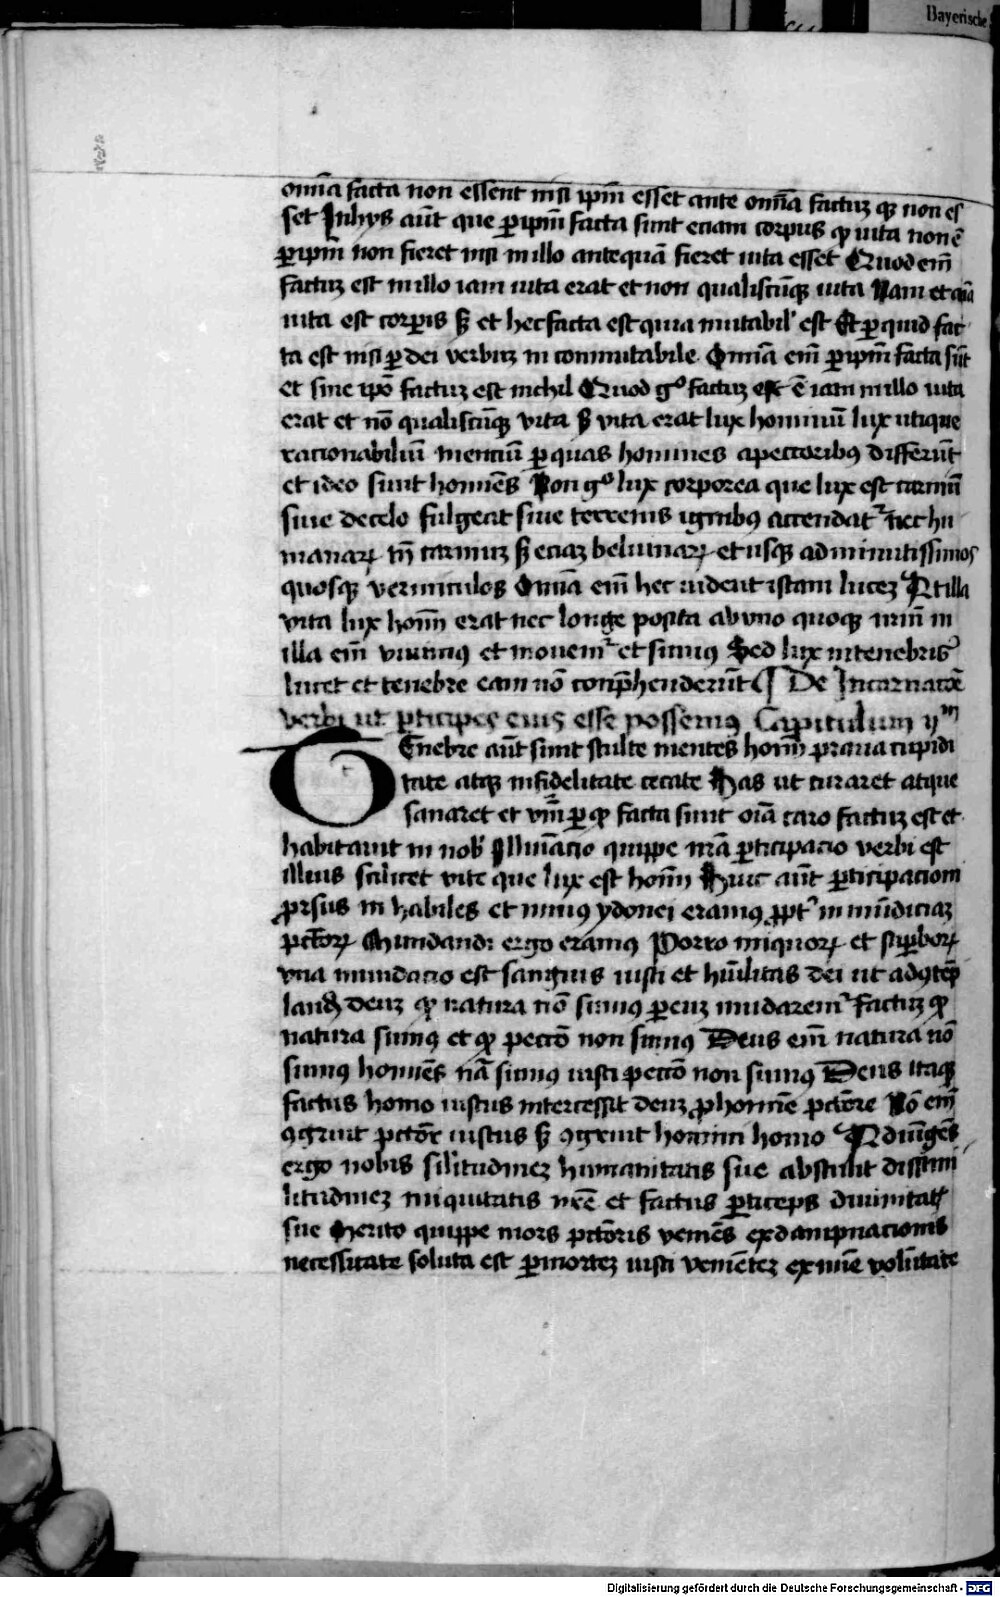 Bayerische
om̄ia facta non essent nisi ip̄m esset ante om̄ia factuꝫ qꝫ non es
set Inhys aūt que ꝑip̄m facta sunt eciam corpus qꝫ vita non ē
ꝑip̄m non fieret nisi in illo antequā fieret vita esset Quod em̄
factuꝫ est in illo iam vita erat et non qualiscūqꝫ vita Nam et aīa
vita est corꝑis sꝫ et hec facta est quia mutabil' est Et ꝑ quid fac
ta est nisi ꝑ dei verbuꝫ in conmutabile Om̄ia em̄ ꝑip̄m facta sūt
et sine ip̄o factuꝫ est nichil Quod gͦ factuꝫ est ē iam in illo vita
erat et nō qualiscūqꝫ vita sꝫ vita erat lux hominū lux utique
racionabiliū menciū ꝑ quas homines a pectoribꝰ differūt
et ideo sunt homīes Non gͦ lux corporea que lux est carniū
siue de celo fulgeat siue terrenis ignibꝰ accendatʳ nec hu
manaꝝ tm̄ carniuꝫ sꝫ eciaꝫ beluinaꝝ et usqꝫ ad minutissimos
quosqꝫ vermiculos Om̄ia em̄ hec vident istam luceꝫ At illa
vita lux hom̄ erat nec longe posita ab vno quoqꝫ nr̄m in
illa em̄ viuimꝰ et mouemʳ et sumꝰ Sed lux in tenebris
lucet et tenebre eam nō conp̄henderūt ¶ De Incarnacōe
verbi ut ꝑticipes eius esse possemꝰ Capitulum ijᵐ
Tenebre aūt sunt stulte mentes hom̄ praua cupidi
tate atqꝫ infidelitate cecate Has ut curaret atque
sanaret et v̄m ꝑ qꝫ facta sunt oīa caro factuꝫ est et
habitauit in nob' Illuīacio quippe nr̄a ꝑticipacio verbi est
illius scilicet vite que lux est hom̄ Huic aūt ꝑticipaciom
ꝓrsus in habiles et minꝰ ydonei eramꝰ ꝓptʳ in mūdiciaꝫ
pctōꝝ Mundandi ergo eramꝰ Porro iniquoꝝ et suꝑboꝝ
vna mundacio est sanguis iusti et hūilitas dei ut ad ꝯtēp
landꝫ deuꝫ qꝫ natura nō sumꝰ ꝑ euꝫ mūdaremʳ factuꝫ qꝫ
natura sumꝰ et qꝫ peccō non sumꝰ Deus em̄ natura nō
sumꝰ homīes nā sumꝰ iusti peccō non sumꝰ Deus itaqꝫ
factus homo iustus intercessit deuꝫ ꝓ homīe pctōre Nō em̄
ꝯgruit pctōr iustus sꝫ ꝯgruit homini homo Adiūgēs
ergo nobis sil'itudineꝫ humanitatis sue abstulit dissimi
litudineꝫ iniquitatis nr̄e et factus ꝑticeps diuinitat'
sue Merito quippe mors pctōris veniēs ex dampnacionis
necessitate soluta est ꝑ morteꝫ iusti veniēteꝫ ex mīe volūtate
Digitalisierung gefördert durch die Deutsche Forschungsgemeinschaft - DFG